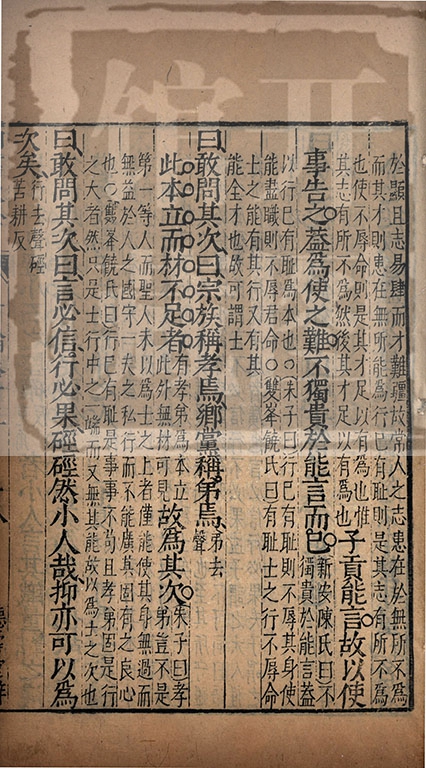 於顯且志易肆而才難彊故常人之志患在於無所不為
而其才則患在無所能為行己有耻則是其志有所不為
也使不辱命則是其才足以有為也惟
其志有所不為然後其才足以有為也
子貢能言故以使
事告之蓋為使之難不獨貴於能言而已
新安陳氏曰不
獨貴於能言蓋
以行己有耻為本也○朱子曰行己有耻則不辱其身使
能盡職則不辱君命○雙峯饒氏曰有耻士之行不辱命
士之能有其行又有其
能全才也故可謂士
曰敢問其次曰宗族稱孝焉鄉黨稱弟焉
弟去
聲
此本立而材不足者
有孝弟為本立
此外無材可見
故為其次
朱子曰孝
弟豈不是
第一等人而聖人未以為士之上者僅能使其身無過而
無益於人之國守一夫之私行而不能廣其固有之良心
也○雙峯饒氏曰行己有耻是事事不苟且孝弟固是行
之大者然只是士行中之一條而又無其能故以為士之次也
曰敢問其次曰言必信行必果硜硜然小人哉抑亦可以為
次矣
行去聲硜
苦耕反